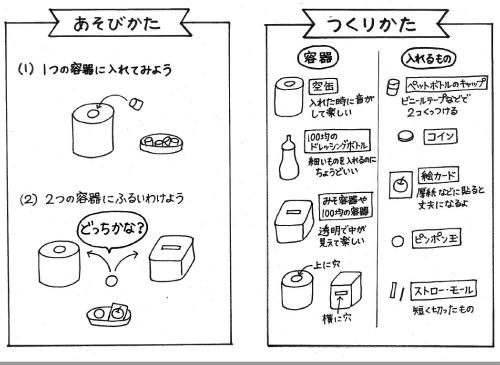 あそびかた
(1) 1つの容器に入れてみよう
(2) 2つの容器にふるいわけよう
どっちかな?
つくりかた
容器
空缶
入れた時に音が
して楽しい
100均の
ドレッシングボトル
細いものを入れるのに
ちょうどいい
みそ容器や
100均の容器
透明で中が
見えて楽しい
上に穴
横に穴
入れるもの
ペットボトルのキャップ
ビニールテープなどで
2コくっつける
コイン
絵カード
厚紙などに貼ると
丈夫になるよ
ピンポン玉
ストロー・モール
短く切ったもの